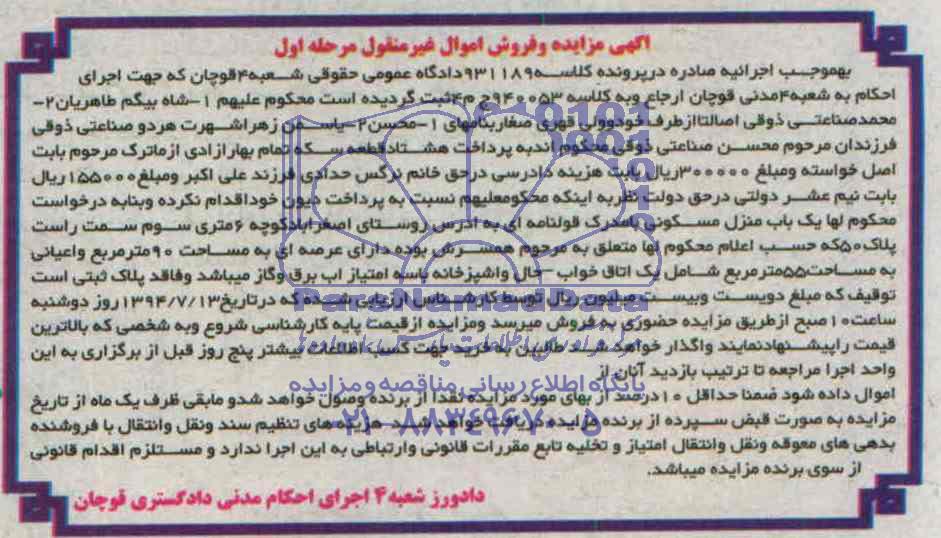 اگهی مزایده وفروش اموال غیرمنقول مرحله اول
بهموجب اجرائیه صادره درپرونده کلاسه۹۳۱۱۸۹دادگاه عمومی حقوقی شعبه۴قوچان که جهت اجرای
احکام به شعبه۴مدنی قوچان ارجاع وبه کلاسه ۹۴۰۰۵۳ج م۴ثبت گردیده است محکوم علیهم ۱-شاه بیگم طاهریان۲-
محمدصناعتی ذوقی اصالتاازطرف خودوولی قهری صغاربنامهای ۱-محسن۲-یاسمن زهراشهرت هردو صناعتی ذوقی
فرزندان مرحوم محسن صناعتی ذوقی محکوم اندبه پرداخت هشتادقطعه سکه تمام بهارازادی ازماترک مرحوم بابت
اصل خواسته ومبلغ ۳۰۰۰۰۰ریال بابت هزینه دادرسی درحق خانم نرگس حدادی فرزند علی اکبر ومبلغ۱۵۵۰۰۰۰ریال
بابت نیم عشر دولتی درحق دولت نظربه اینکه محکومعلیهم نسبت به پرداخت دیون خوداقدام نکرده وبنابه درخواست
محکوم لها یک باب منزل مسکونی بامدرک قولنامه ای به ادرس روستای اصغرابادکوچه ۶متری سوم سمت راست
پلاک۵۰که حسب اعلام محکوم لها متعلق به مرحوم همسرش بوده دارای عرصه ای به مساحت ۹۰مترمربع واعیانی
به مساحت۵۵مترمربع شامل یک اتاق خواب -حال واشپزخانه باسه امتیاز اب برق وگاز میباشد وفاقد پلاک ثبتی است
توقیف که مبلغ دویست وبیست میلیون ریال توسط کارشناس ارزیابی شده که درتاریخ۱۳۹۴/۷/۱۳روز دوشنبه
ساعت۱۰صبح ازطریق مزایده حضوری به فروش میرسد ومزایده ازقیمت پایه کارشناسی شروع وبه شخصی که بالاترین
قیمت راپیشنهادنمایند واگذار خواهد شد طالبین به خرید جهت کسب اطلاعات بیشتر پنج روز قبل از برگزاری به این
واحد اجرا مراجعه تا ترتیب بازدید آنان از
اموال داده شود ضمنا حداقل ۱۰درصد از بهای مورد مزایده نقدا از برنده وصول خواهد شدو مابقی ظرف یک ماه از تاریخ
مزایده به صورت قبض سپرده از برنده مزایده دریافت خواهد شد هزینه های تنظیم سند ونقل وانتقال با فروشنده
بدهی های معوقه ونقل وانتقال امتیاز و تخلیه تابع مقررات قانونی وارتباطی به این اجرا ندارد و مستلزم اقدام قانونی
از سوی برنده مزایده میباشد.
دادورز شعبه۴ اجرای احکام مدنی دادگستری قوچان
ParsNamadData
پایگاه اطلاع رسانی مناقصه و مزایده
۰۲۱-۸۸۳۴۹۶۷۰-۵